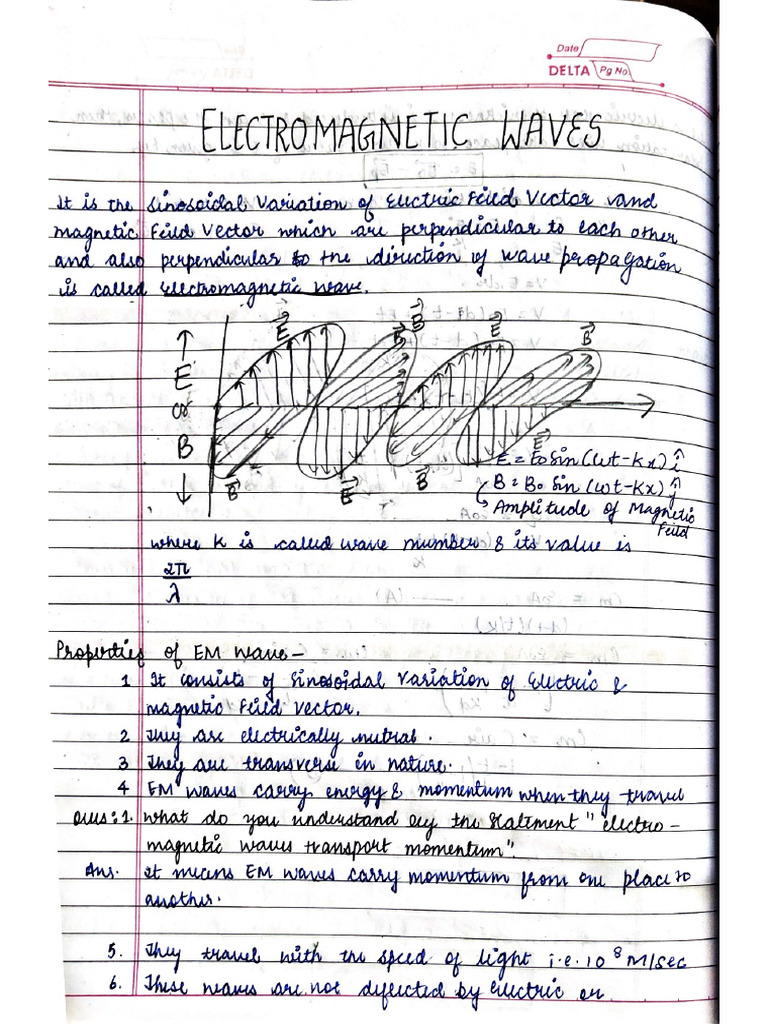 Date
DELTA Pg No
ELECTROMAGNETIC WAVES
It is the Sinosoidal Variation of Electric Feild Vector and
magnetic Feild Vector which are perpendicular to each other
and also perpendicular to the direction of wave propagation
is called electromagnetic wave.
E or B
E
B
B
E
B
B
E
B
E
E = E0 Sin (wt - kx) î
B = B0 Sin (wt - kx) ĵ
Amplitude of Magnetic
Feild
where K is called wave number & its value is
2π
λ
Properties of EM wave –
1 It consists of Sinosoidal Variation of Electric &
magnetic Feild Vector.
2 They are electrically nutral.
3 They are transverse in nature.
4 EM waves carry energy & momentum when they travel
Ques:1. What do you understand by the Statement "electro-
magnetic waves transport momentum".
Ans. It means EM waves carry momentum from one place to
another.
5. They travel with the speed of light i.e. 10⁸ M/sec
6. These waves are not deflected by electric or